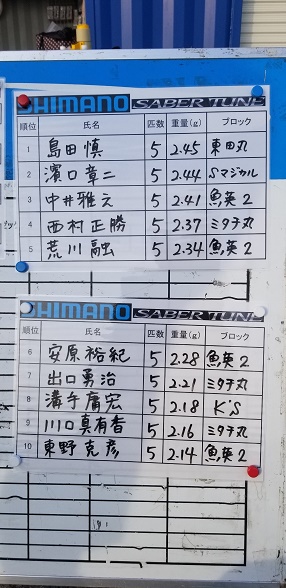 SHIMANO SABER TUNE
順位 氏名 匹数 重量(g) ブロック
1 島田 慎 5 2.45 東田丸
2 濱口章二 5 2.44 Sマジカル
3 中井雅之 5 2.41 魚英2
4 西村正勝 5 2.37 ミタチ丸
5 荒川 融 5 2.34 魚英2
SHIMANO SABER TUNE
順位 氏名 匹数 重量(g) ブロック
6 安原裕紀 5 2.28 魚英2
7 出口勇治 5 2.21 ミタチ丸
8 溝手庸宏 5 2.18 K'S
9 川口真有香 5 2.16 ミタチ丸
10 東野克彦 5 2.14 魚英2